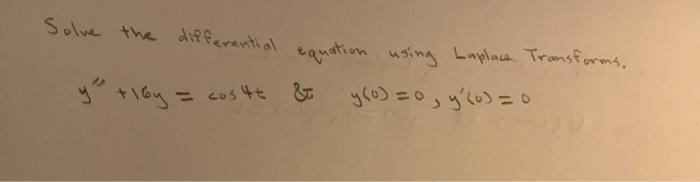 Solve the differential equation using Laplace Transforms.
y'' + 16y = cos 4t & y(0) = 0, y'(0) = 0